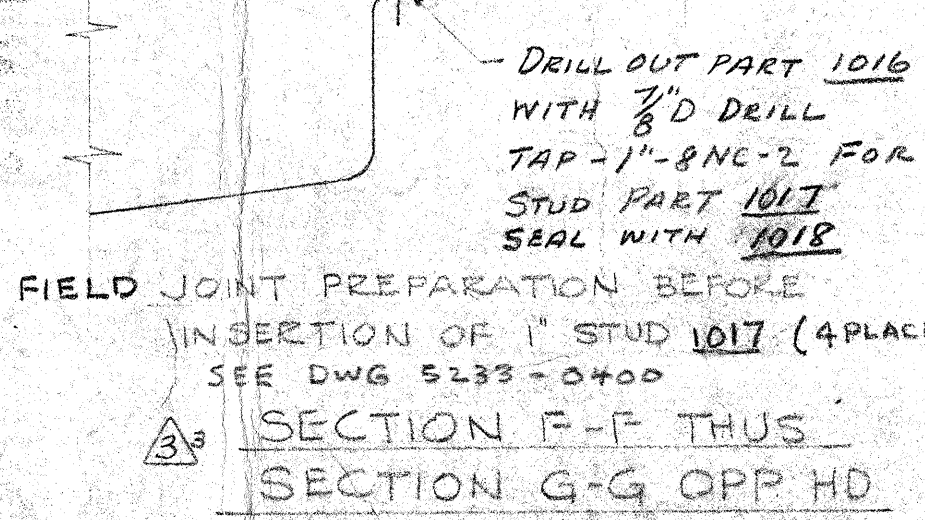 DRILL OUT PART 1016
WITH 7/8"D DRILL
TAP - 1"-8NC-2 FOR
STUD PART 1017
SEAL WITH 1018
FIELD JOINT PREPARATION BEFORE
INSERTION OF 1" STUD 1017 (4 PLAC
SEE DWG 5233-0400
3 3
SECTION F-F THUS
SECTION G-G OPP HD